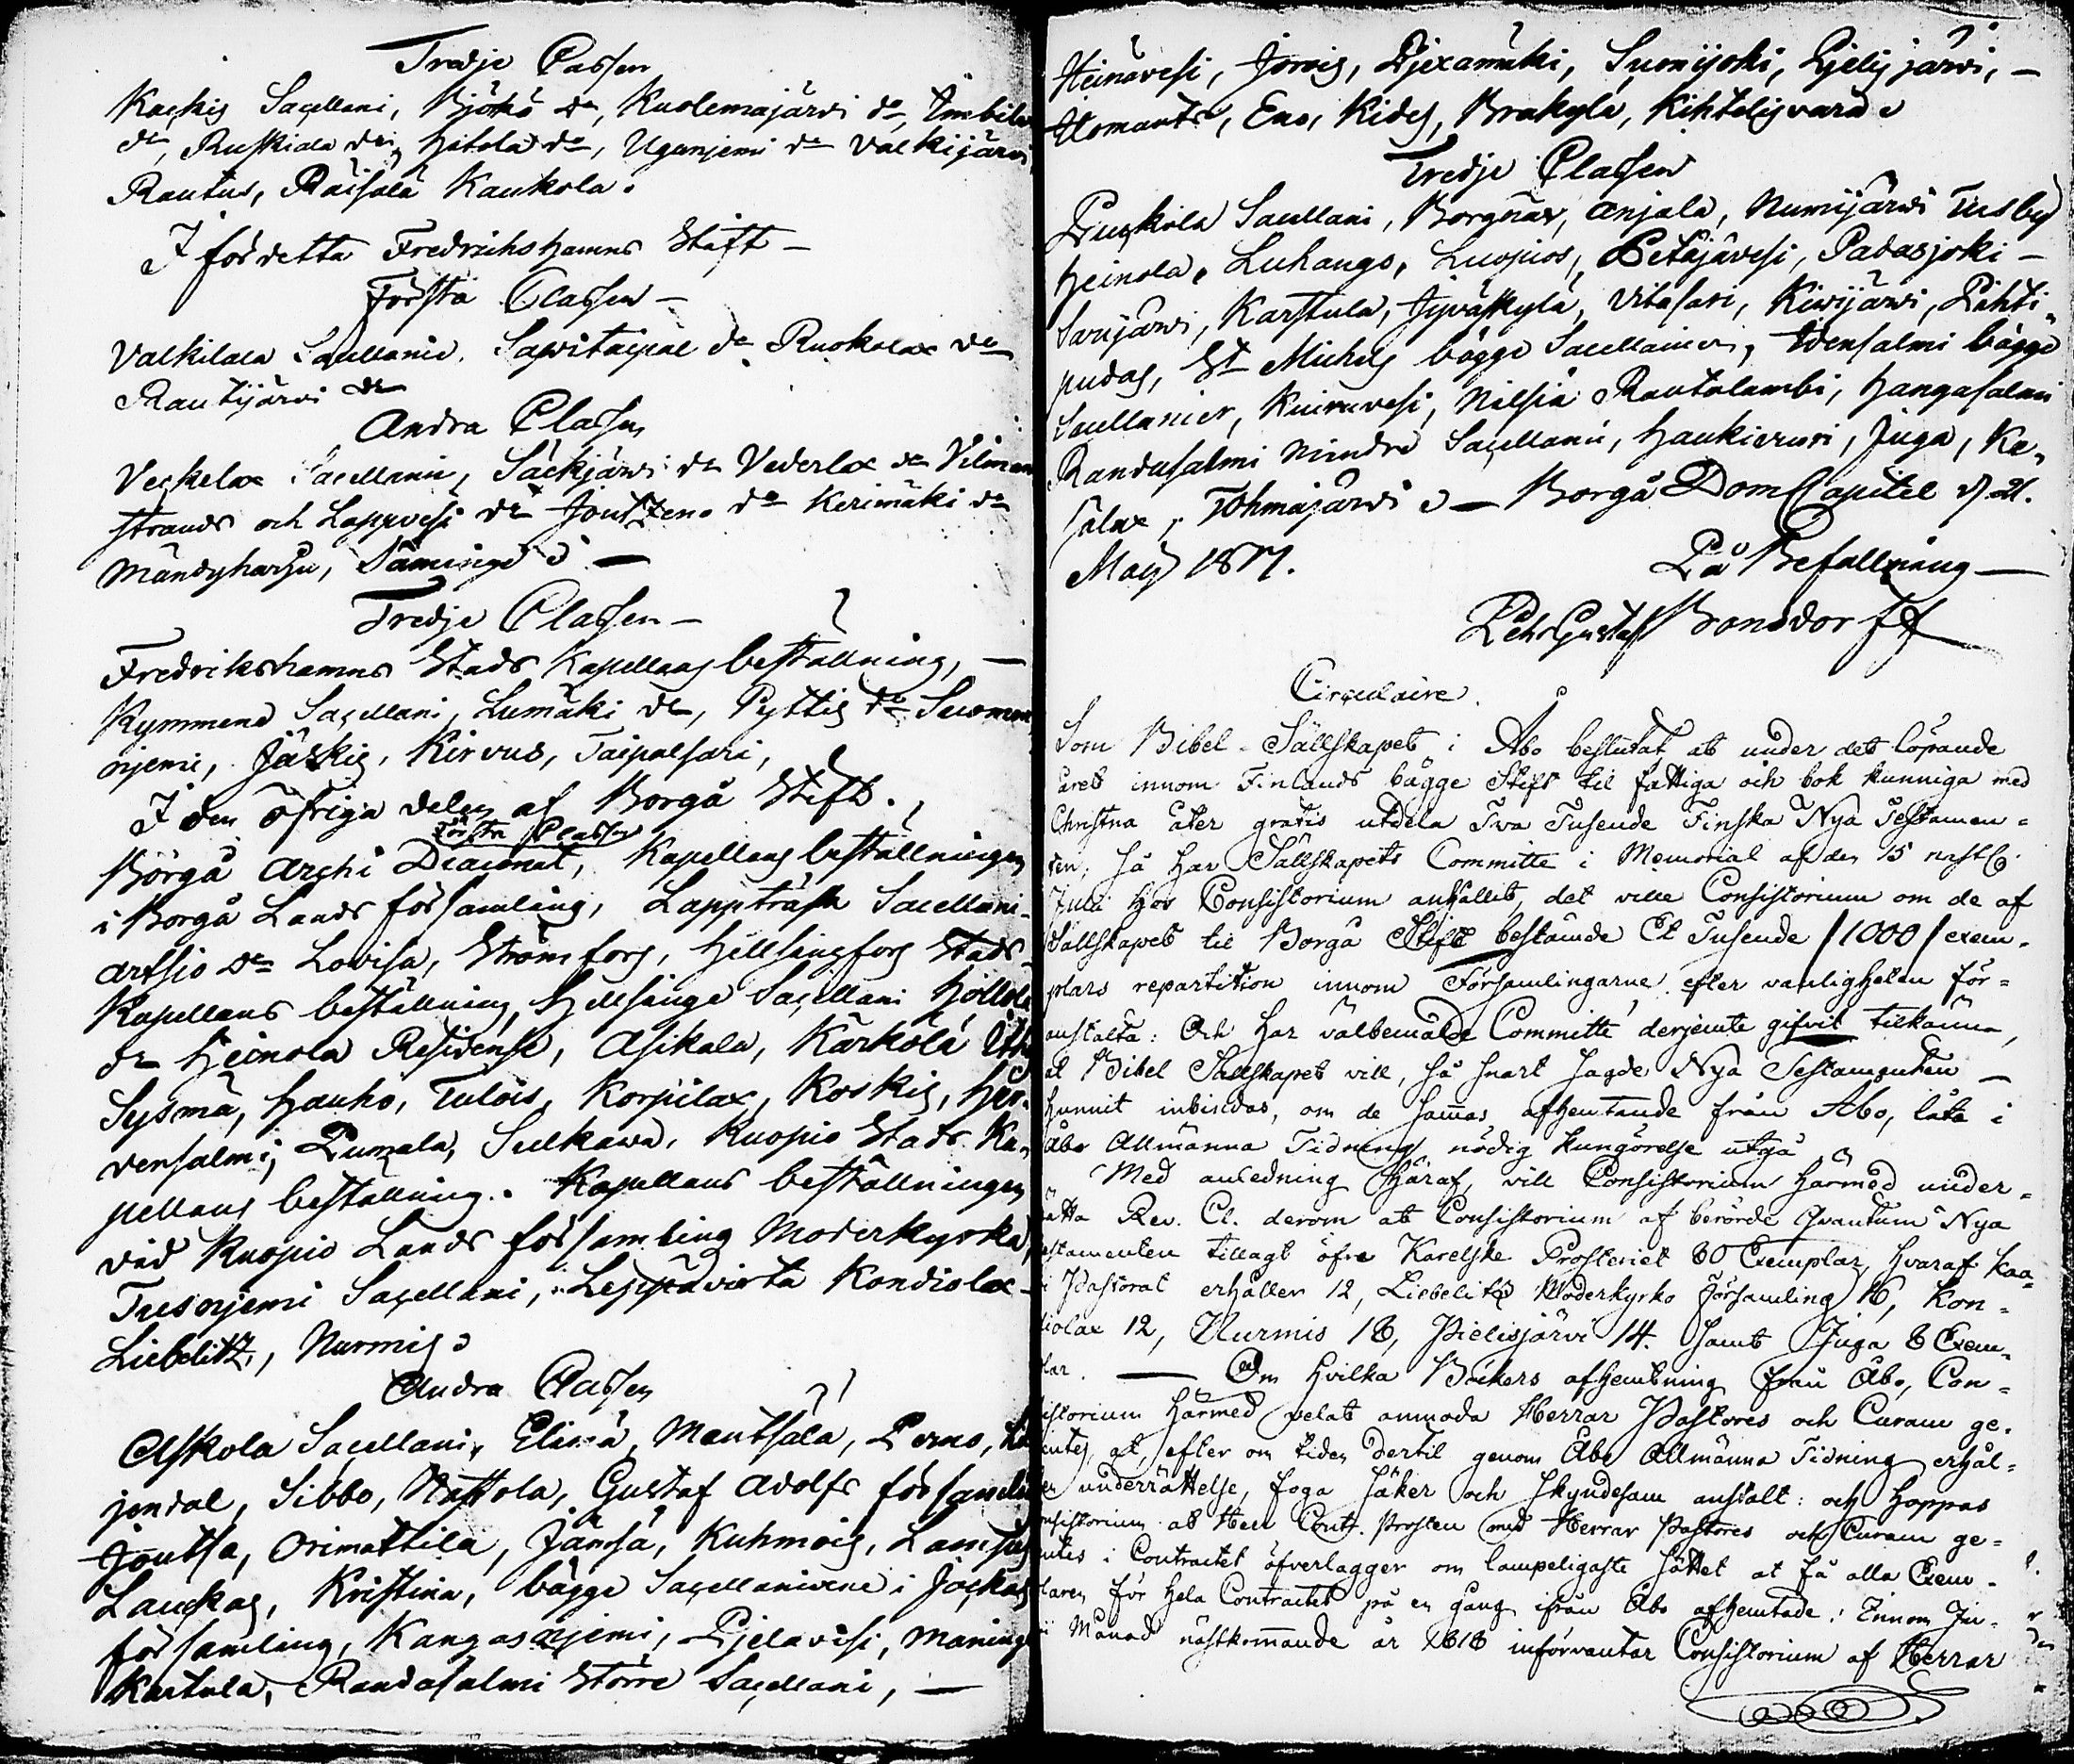 Tredje Classen
Kaskis Sacellani, Björkö do, Kuolemajärvi do, Imbilax
do, Ruskiala do, Hitola do, Ugunjemi do Valkijärvi
Rautus, Räisälä Kaukola.
I för detta Fredrichshamns Stift —
Första Classen —
Valkiala Sacellanie. Savitaipal do Ruokolax do
Rautjärvi do
Andra Classen
Veckelax Sacellanie, Säckjärvi do Vederlax do Vilman
strands och Lappvesi do Joutzeno do Kerimäki do
Mändyharju, Säminge —
Tredje Classen —
Fredrikshamns Stads Kapellans beställning, —
Kymmene Sacellani, Lumäki do, Pyttis do Suomen
njemi, Jäskis, Kirvus, Taipalsari,
I den öfriga delen af Borgå Stift.
Första Classen
Borgå Archi Diaconat, Kapellans beställningen
i Borgå Lands församling, Lappträsk Sacellani
Artsjö do Lovisa, Strömfors, Hellsingfors Stads
Kapellans beställning, Hellsinge Sacellani Hollola
do Heinola Residense, Asikala, Kärkölä
Sysmä, Hauho, Tulois, Korpilax, Koskis, Hir-
vensalmi, Pumala, Sulkawa, Kuopio Stads Ka-
pellans beställning. Kapellans beställningen
vid Kuopio Lands församling Moderkyrka,
Tusnjemi Sacellani, Leppävirta Kondiolax
Liebelitz, Nurmis
Andra Classen
Askola Sacellani, Elimä, Mäntsälä, Perno,
jendal, Sibbo, Nastola, Gustaf Adolfs församling
Joutsa, Orimattila, Jämsä, Kuhmois,
Laukas, Kristina, bägge Sacellanierne i Jockas
församling, Kangasnjemi, Pjelavesi, Maninga
Kartula, Randasalmi Större Sacellani, —
Heinävesi, Jorois, Pjexämäki, Sumijoki, Pjelisjärvi, —
Ilomants, Eno, Kides, Brakylä, Kihtelysvara
Tredje Classen
Puskola Sacellani, Borgnäs, Anjala, Numijärvi Tusby
Heinola, Luhango, Luopios, Petäjävesi, Padasjoki —
Sarijärvi, Karstula, Jyväskylä, Vitasari, Kivijärvi, Pihti-
pudas, St Michels bägge Sacellanier, Idensalmi bägge
Sacellanier, Kiuruvesi, Nilsiä Rautalambi, Hangasalmi
Randasalmi Mindre Sacellanie, Haukivuori, Juga, Ka-
, Tohmajärvi — Borgå DomCapitel d. 21.
Maij 1817.
På Befallning —
Pehr Gustaf Bonsdorff
Circulaire.
Som Bibel-Sällskapet i Åbo beslutat at under det löpande
året innom Finlands bägge Stift til fattiga och bok kunniga med
Christna åter gratis utdela Två Tusende Finska Nya Testamen-
ten, så har Sällskapets Committé i Memorial af den 15 nästl:
Julii hos Consistorium anhållit, det ville Consistorium om de af
Sällskapet til Borgå Stift bestämde Et Tusende /1000/ exem-
plars repartition innom Församlingarne efter vanligheten för-
anstalta: Och har välbemälde Committé derjemte gifvit tilkänna,
at Bibel Sällskapet vill, så snart sagde Nya Testamenten —
hunnit inbindas, om de sammas afhemtande från Åbo, låta i
Åbo Allmänna Tidning nödig kungörelse utgå
Med anledning häraf, vill Consistorium härmed under-
rätta Rev. Cl. derom at Consistorium af berörde Qvantum Nya
Testamenten tillagt öfre Karelske Prosteriet 80 Exemplar, hvaraf Kaa-
vi Pastorat erhåller 12, Liebelitz Moderkyrko Församling 16, Kon-
diolax 12, Nurmis 18, Pielisjärvi 14. samt Juga 8 Exem-
plar. — Om hvilka Böckers afhemtning från Åbo, Con-
sistorium härmed velat anmoda Herrar Pastores och Curam ge-
rentes, at, efter om tiden dertil genom Åbo Allmänna Tidning erhål-
len underrättelse, foga säker och skyndesam anstalt: och hoppas
Consistorium at Herr Contr. Prosten med Herrar Pastores och Curam ge-
rentes i Contractet öfverlägger om lämpeligaste sättet at få alla Exem-
plaren för hela Contractet på en gång ifrån Åbo afhemtade: Innom Ju-
nii Månad nästkommande år 1818 införväntar Consistorium af Herrar